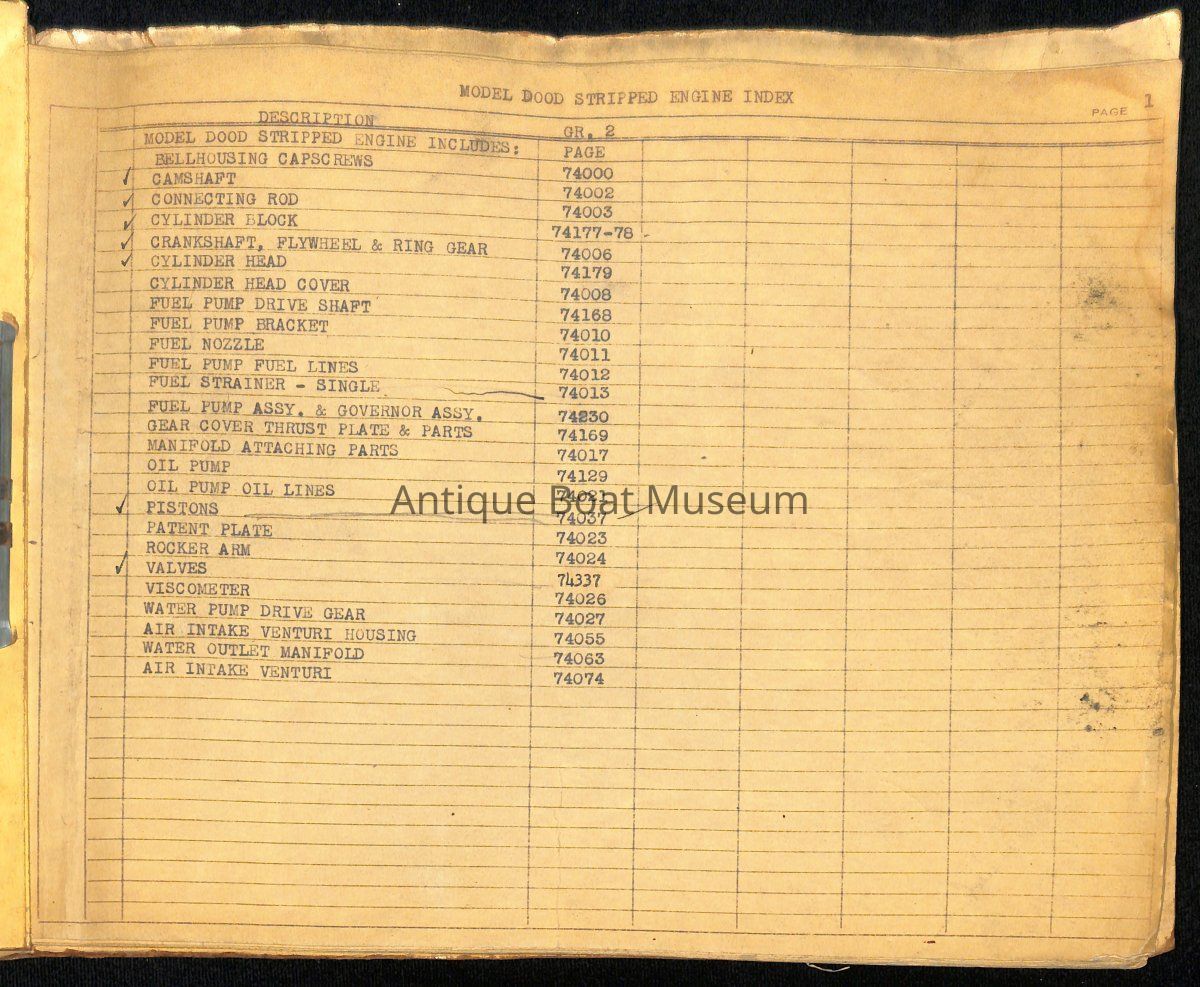 MODEL DOOD STRIPPED ENGINE INDEX
PAGE 1
DESCRIPTION GR. 2
MODEL DOOD STRIPPED ENGINE INCLUDES: PAGE
BELLHOUSING CAPSCREWS 74000
✓ CAMSHAFT 74002
✓ CONNECTING ROD 74003
✓ CYLINDER BLOCK 74177-78
✓ CRANKSHAFT, FLYWHEEL & RING GEAR 74006
✓ CYLINDER HEAD 74179
CYLINDER HEAD COVER 74008
FUEL PUMP DRIVE SHAFT 74168
FUEL PUMP BRACKET 74010
FUEL NOZZLE 74011
FUEL PUMP FUEL LINES 74012
FUEL STRAINER - SINGLE 74013
FUEL PUMP ASSY. & GOVERNOR ASSY. 74230
GEAR COVER THRUST PLATE & PARTS 74169
MANIFOLD ATTACHING PARTS 74017
OIL PUMP 74129
OIL PUMP OIL LINES 74021
✓ PISTONS 74037
PATENT PLATE 74023
ROCKER ARM 74024
✓ VALVES 74337
VISCOMETER 74026
WATER PUMP DRIVE GEAR 74027
AIR INTAKE VENTURI HOUSING 74055
WATER OUTLET MANIFOLD 74063
AIR INTAKE VENTURI 74074
Antique Boat Museum